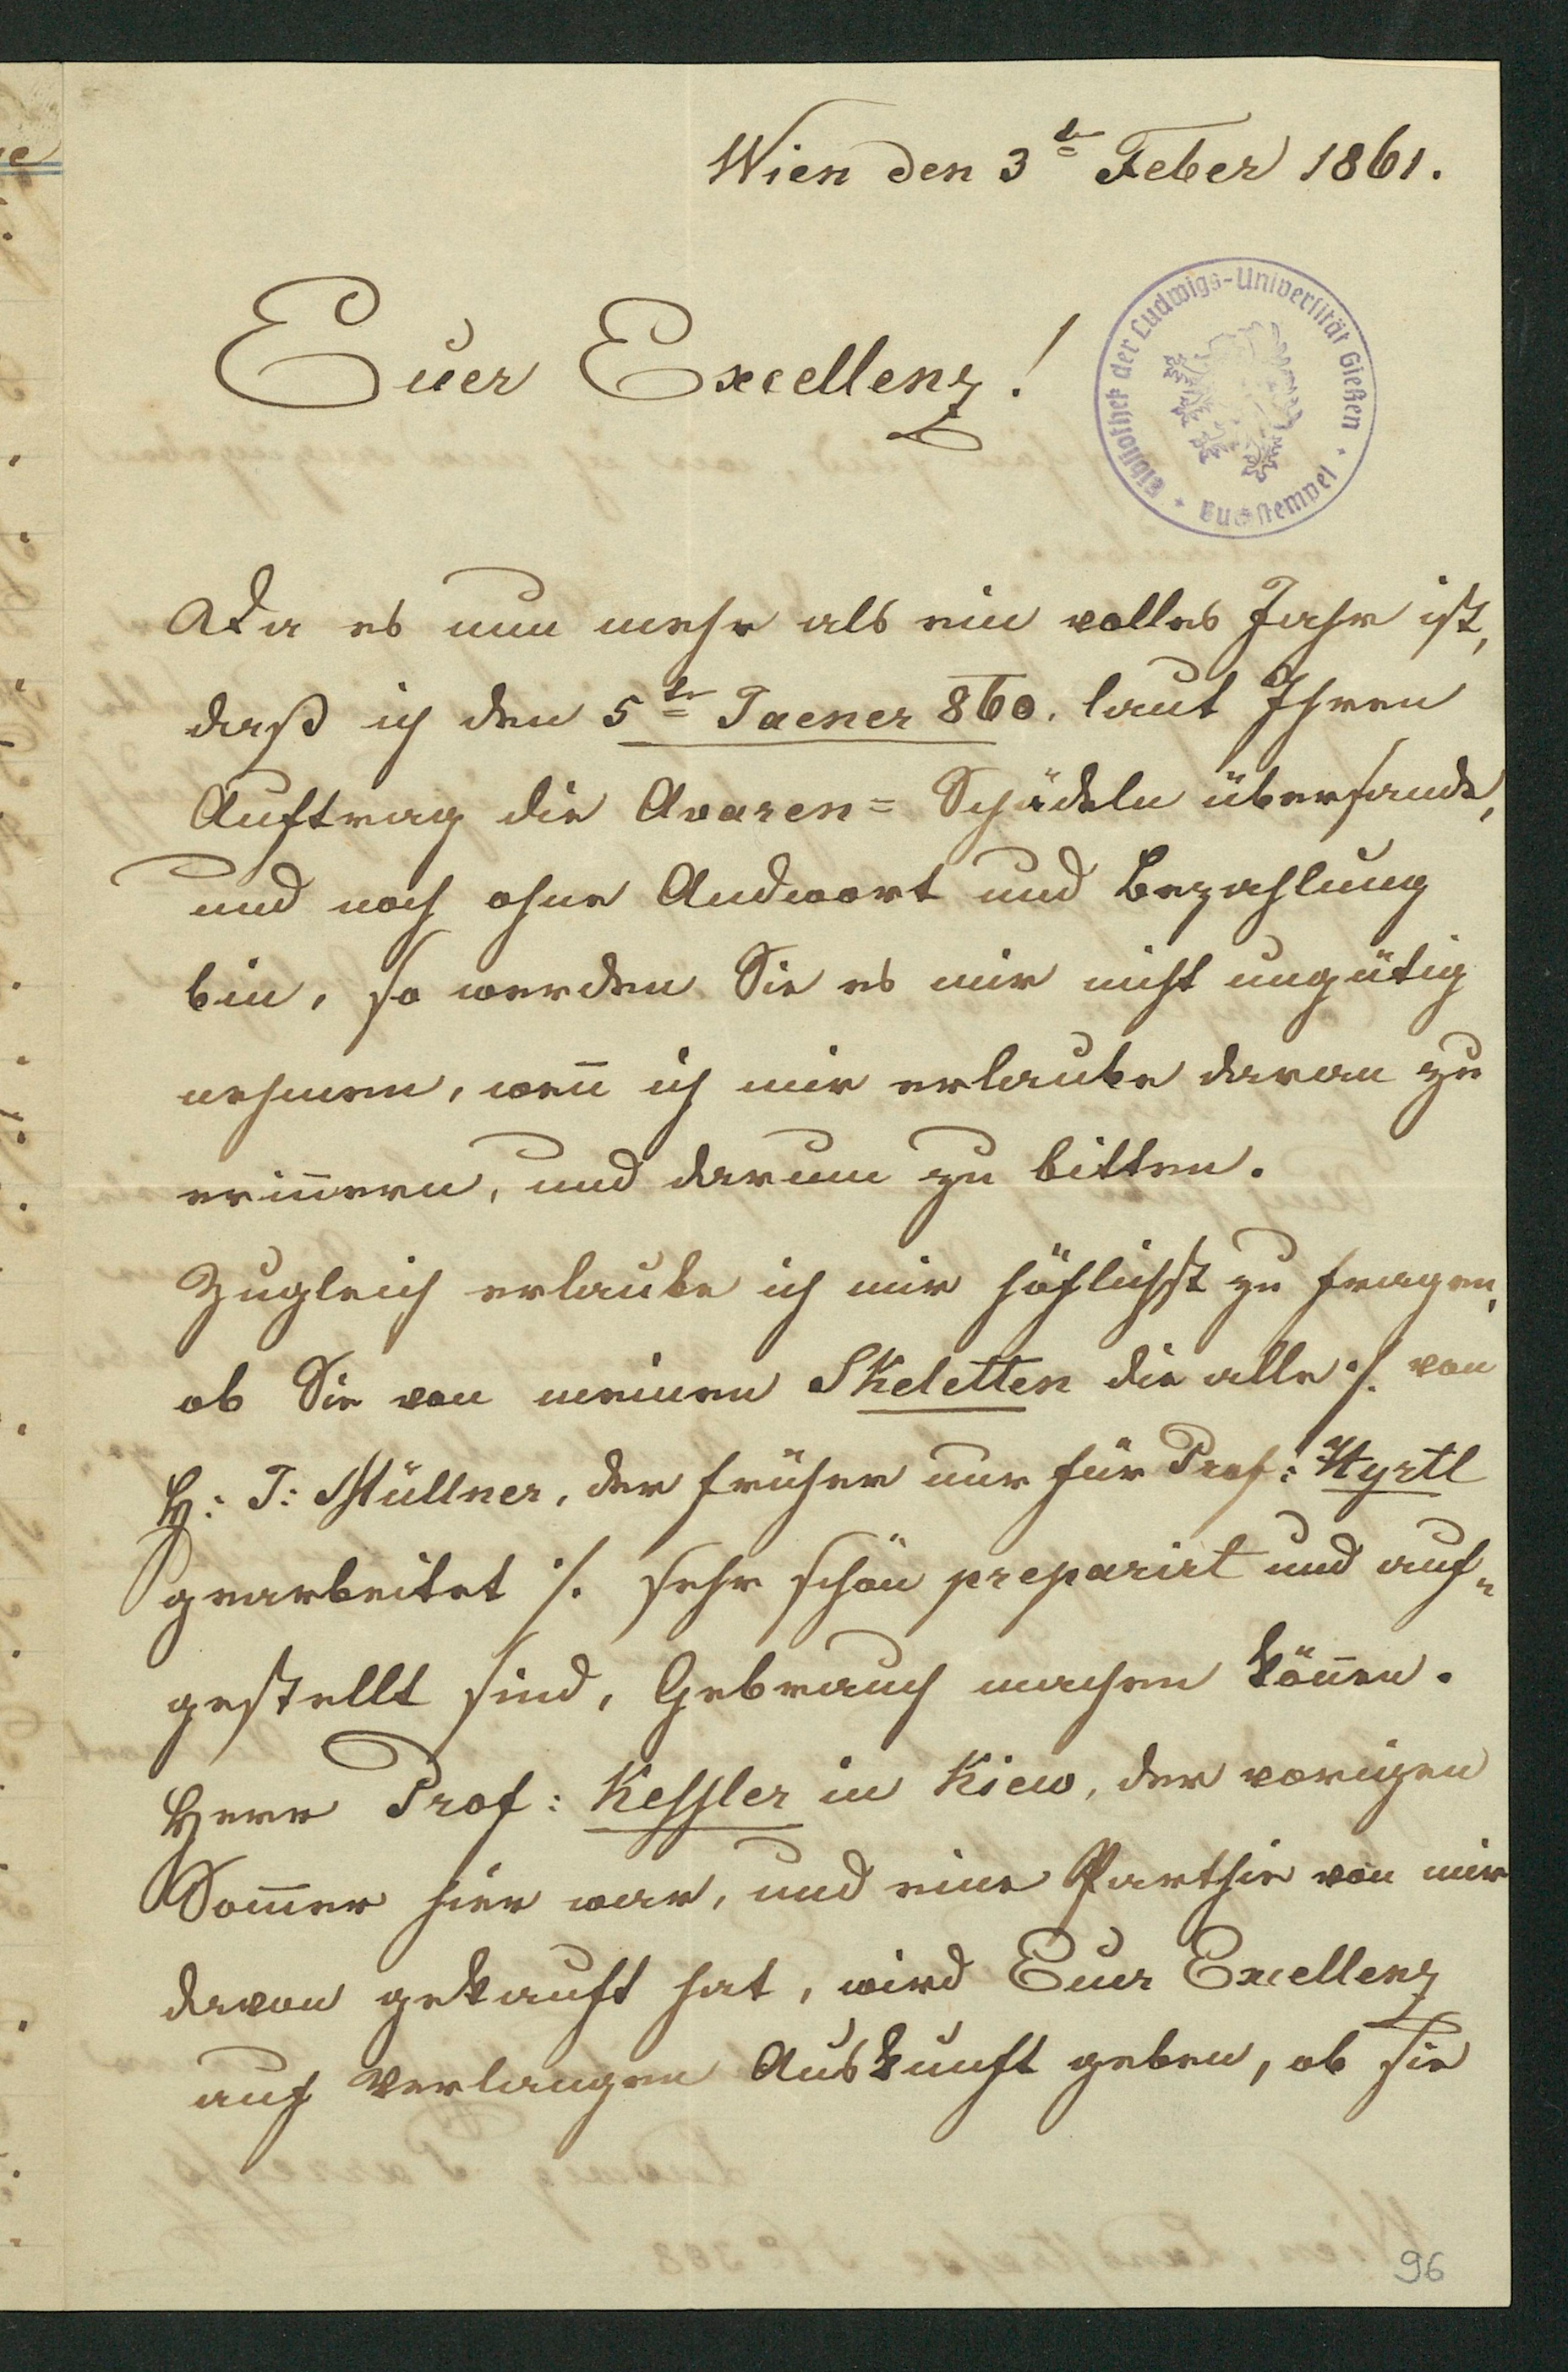 Wien den 3ten Feber 1861.
Euer Excellenz!
Bibliothek der Ludwigs-Universität Gießen * Buchstempel *
Da es nun mehr als ein volles Jahr ist,
daß ich den 5ten Jaener 860. laut Ihren
Auftrag die Avaren= Schädeln übersande,
und noch ohne Andwort und Bezahlung
bin, so werden Sie es mir nicht ungütig
nehmen, wen̄ ich mir erlaube daran zu
erin̄ern, und darum zu bitten.
Zugleich erlaube ich mir höflichst zu fragen,
ob Sie von meinen Skeletten die alle ./. von
H: J: Müllner, der früher nur für Prof: Hyrtl
gearbeitet ./. sehr schön preparirt und auf=
gestellt sind, Gebrauch machen kön̄en.
Herr Prof: Kessler in Kiew, der vorigen
Som̄er hier war, und eine Parthie von mir
davon gekauft hat, wird Euer Excellenz
auf Verlangen Auskunft geben, ob sie
96